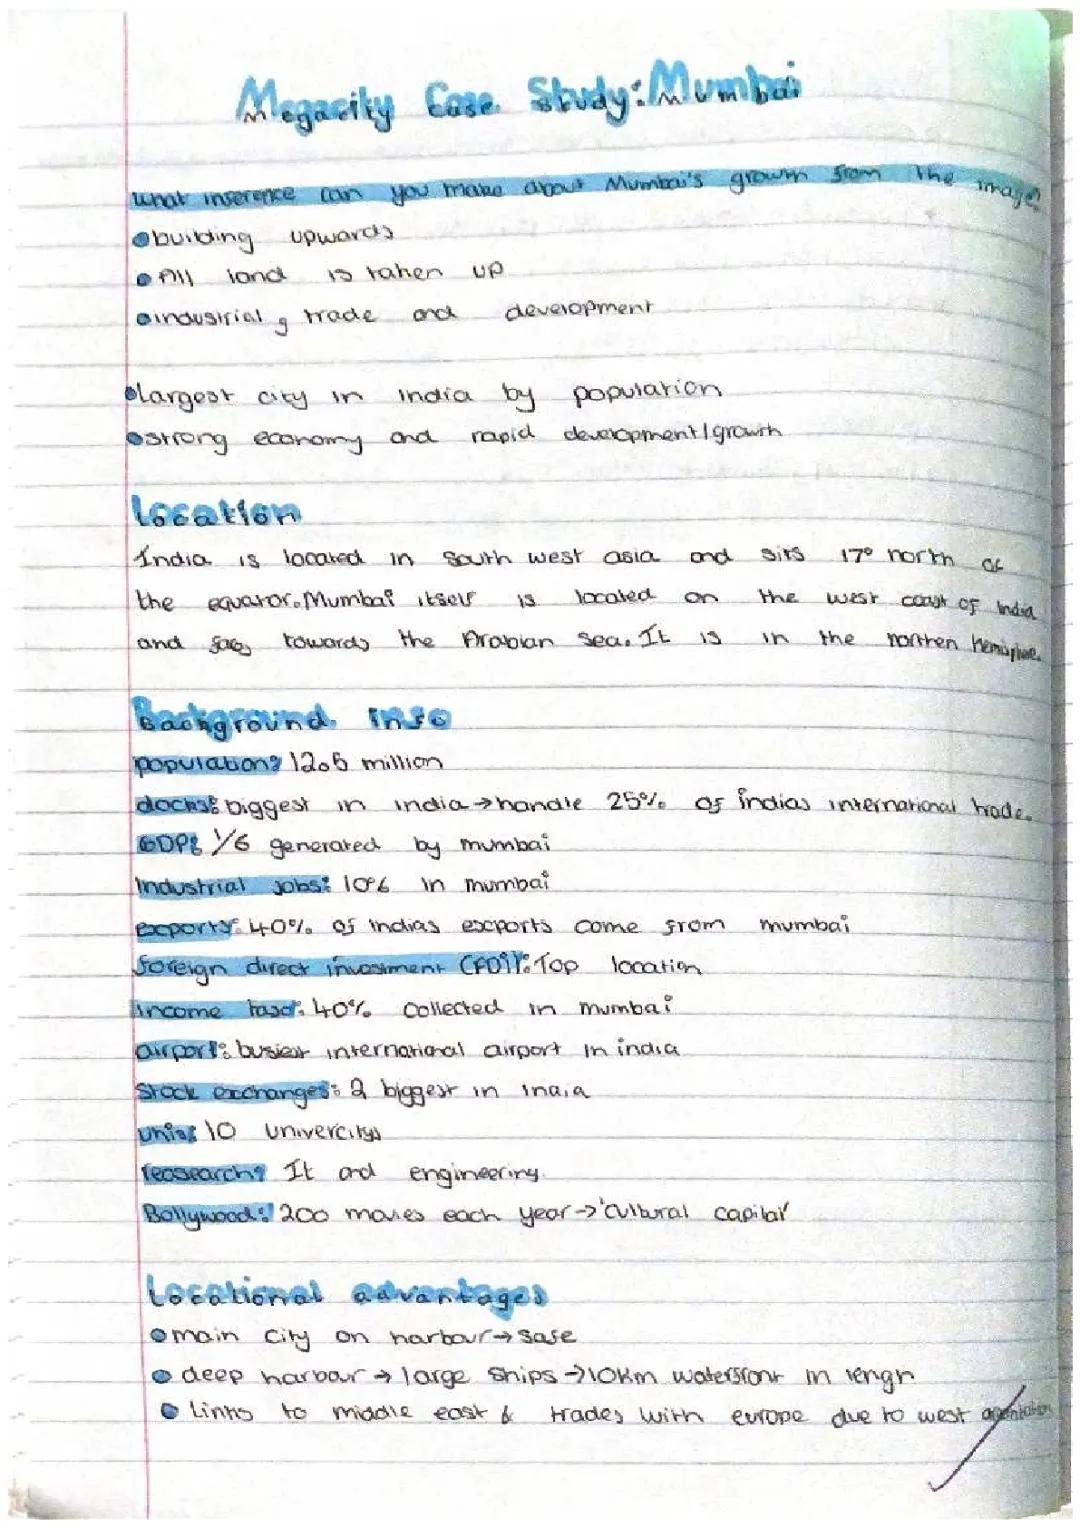 Megacity Case Study: Mumbai
what inference can you make about Mumbai's growth from the image?
• building upwards
• All land is taken up
• industrial, trade and development
• largest city in India by population
• strong economy and rapid development/growth
Location
India is located in South west asia and sits 17° north of
the equator. Mumbai itself is located on the west coast of India
and towards the Arabian Sea. It is in the northen
Background info
population: 12.5 million
docks: biggest in india → handle 25% of indias international trade.
GDP: 1/6 generated by mumbai
Industrial jobs: 10% in mumbai
exports: 40% of indias exports come from mumbai
foreign direct invesment (FDI): Top location
income tax: 40% collected in mumbai
airport: busiest international airport in india
Stock exchanges: 2 biggest in india
unis: 10 univercitys
reasearch: It and engineering
Bollywood: 200 movies each year → 'cultural capital'
Locational advantages
• main city on harbour → safe
• deep harbour → large ships → 10km waterfront in lengh
• Links to middle east & trades with europe due to west